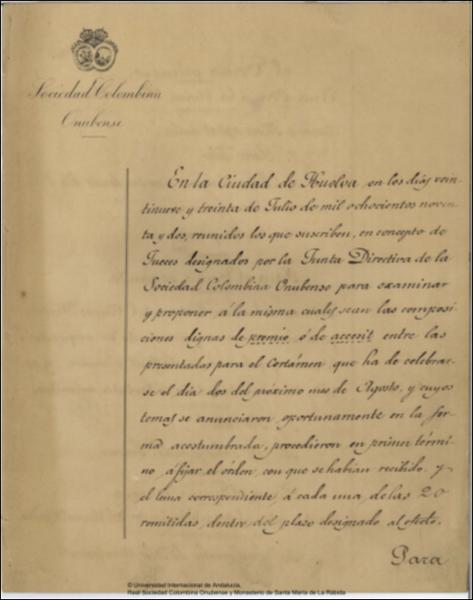 Sociedad Colombina
Onubense
En la Ciudad de Huelva, en los días vein
tinueve y treinta de Julio de mil ochocientos noven
ta y dos, reunidos los que suscriben, en concepto de
Jueces designados por la Junta Directiva de la
Sociedad Colombina Onubense para examinar
y proponer á la misma cuales sean las composi
ciones dignas de premio, ó de accesit entre las
presentadas para el Certámen que ha de celebrar
se el dia dos del próximo mes de Agosto, y cuyos
temas se anunciaron oportunamente en la for
ma acostumbrada, procedieron en primer térmi
no á fijar el órden, con que se habían recibido y
el lema correspondiente á cada una de las 20
remitidas, dentro del plazo designado al efecto.
Para
© Universidad Internacional de Andalucía,
Real Sociedad Colombina Onubense y Monasterio de Santa María de La Rábida